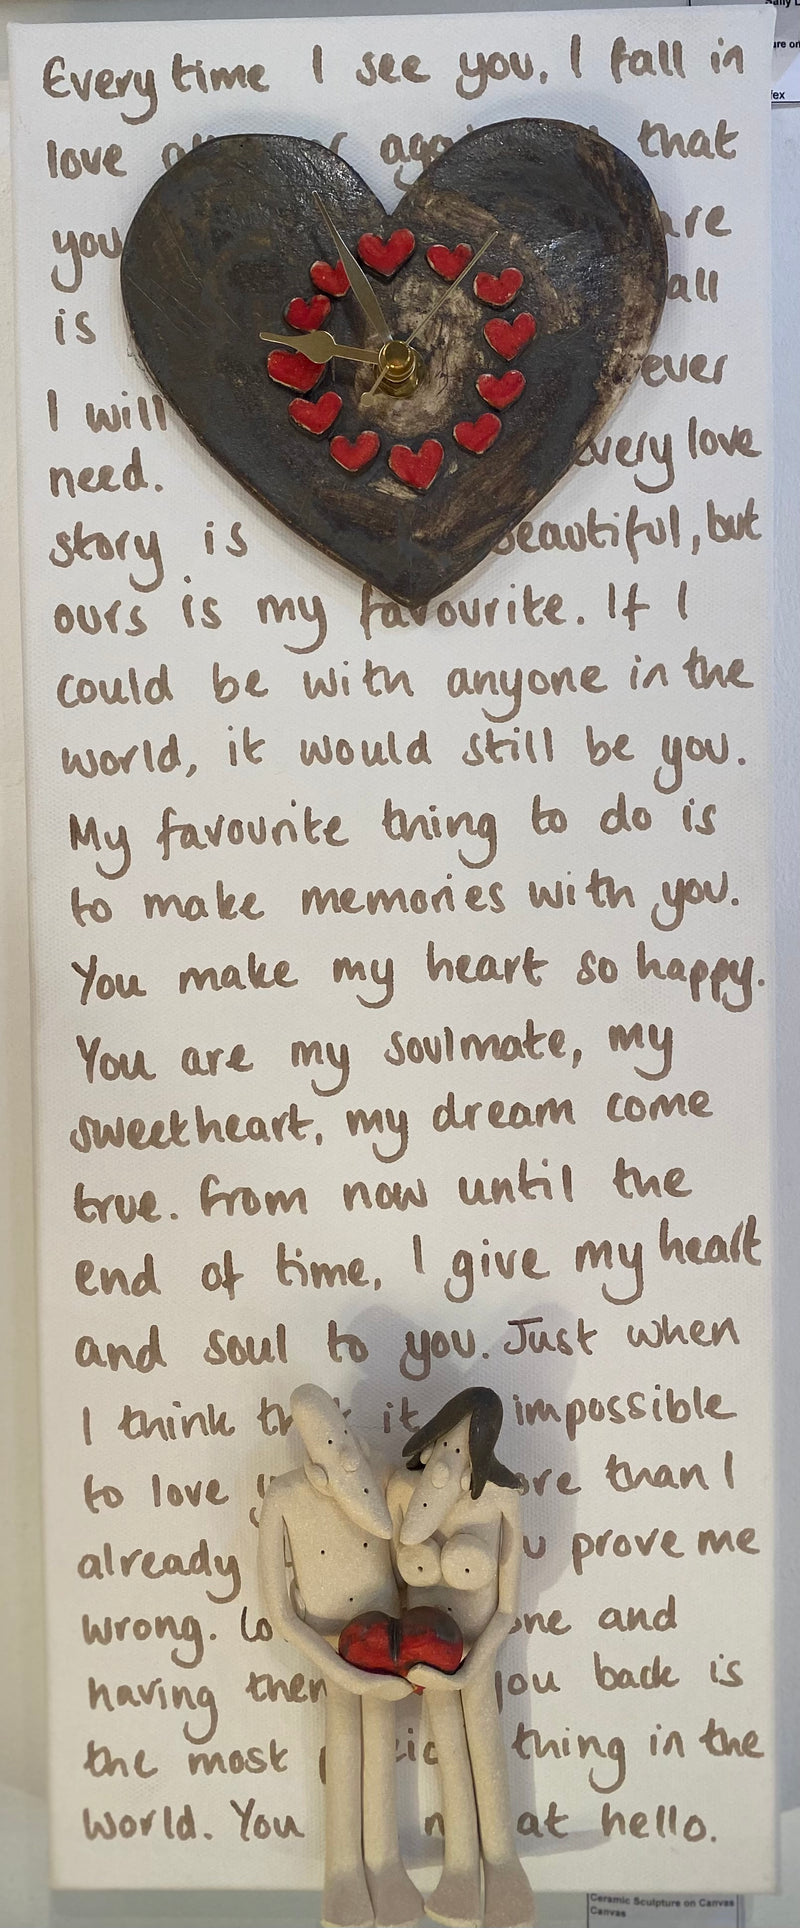 Sally
ure on
fex
Every time I see you, I fall in
love that
you are
is all
I will ever
need. every love
story is beautiful, but
ours is my favourite. If I
could be with anyone in the
world, it would still be you.
My favourite thing to do is
to make memories with you.
You make my heart so happy.
You are my soulmate, my
sweetheart, my dream come
true. From now until the
end of time, I give my heart
and soul to you. Just when
I think it impossible
to love than I
already prove me
wrong. and
having you back is
the most thing in the
world. You at hello.
Ceramic Sculpture on Canvas
Canvas